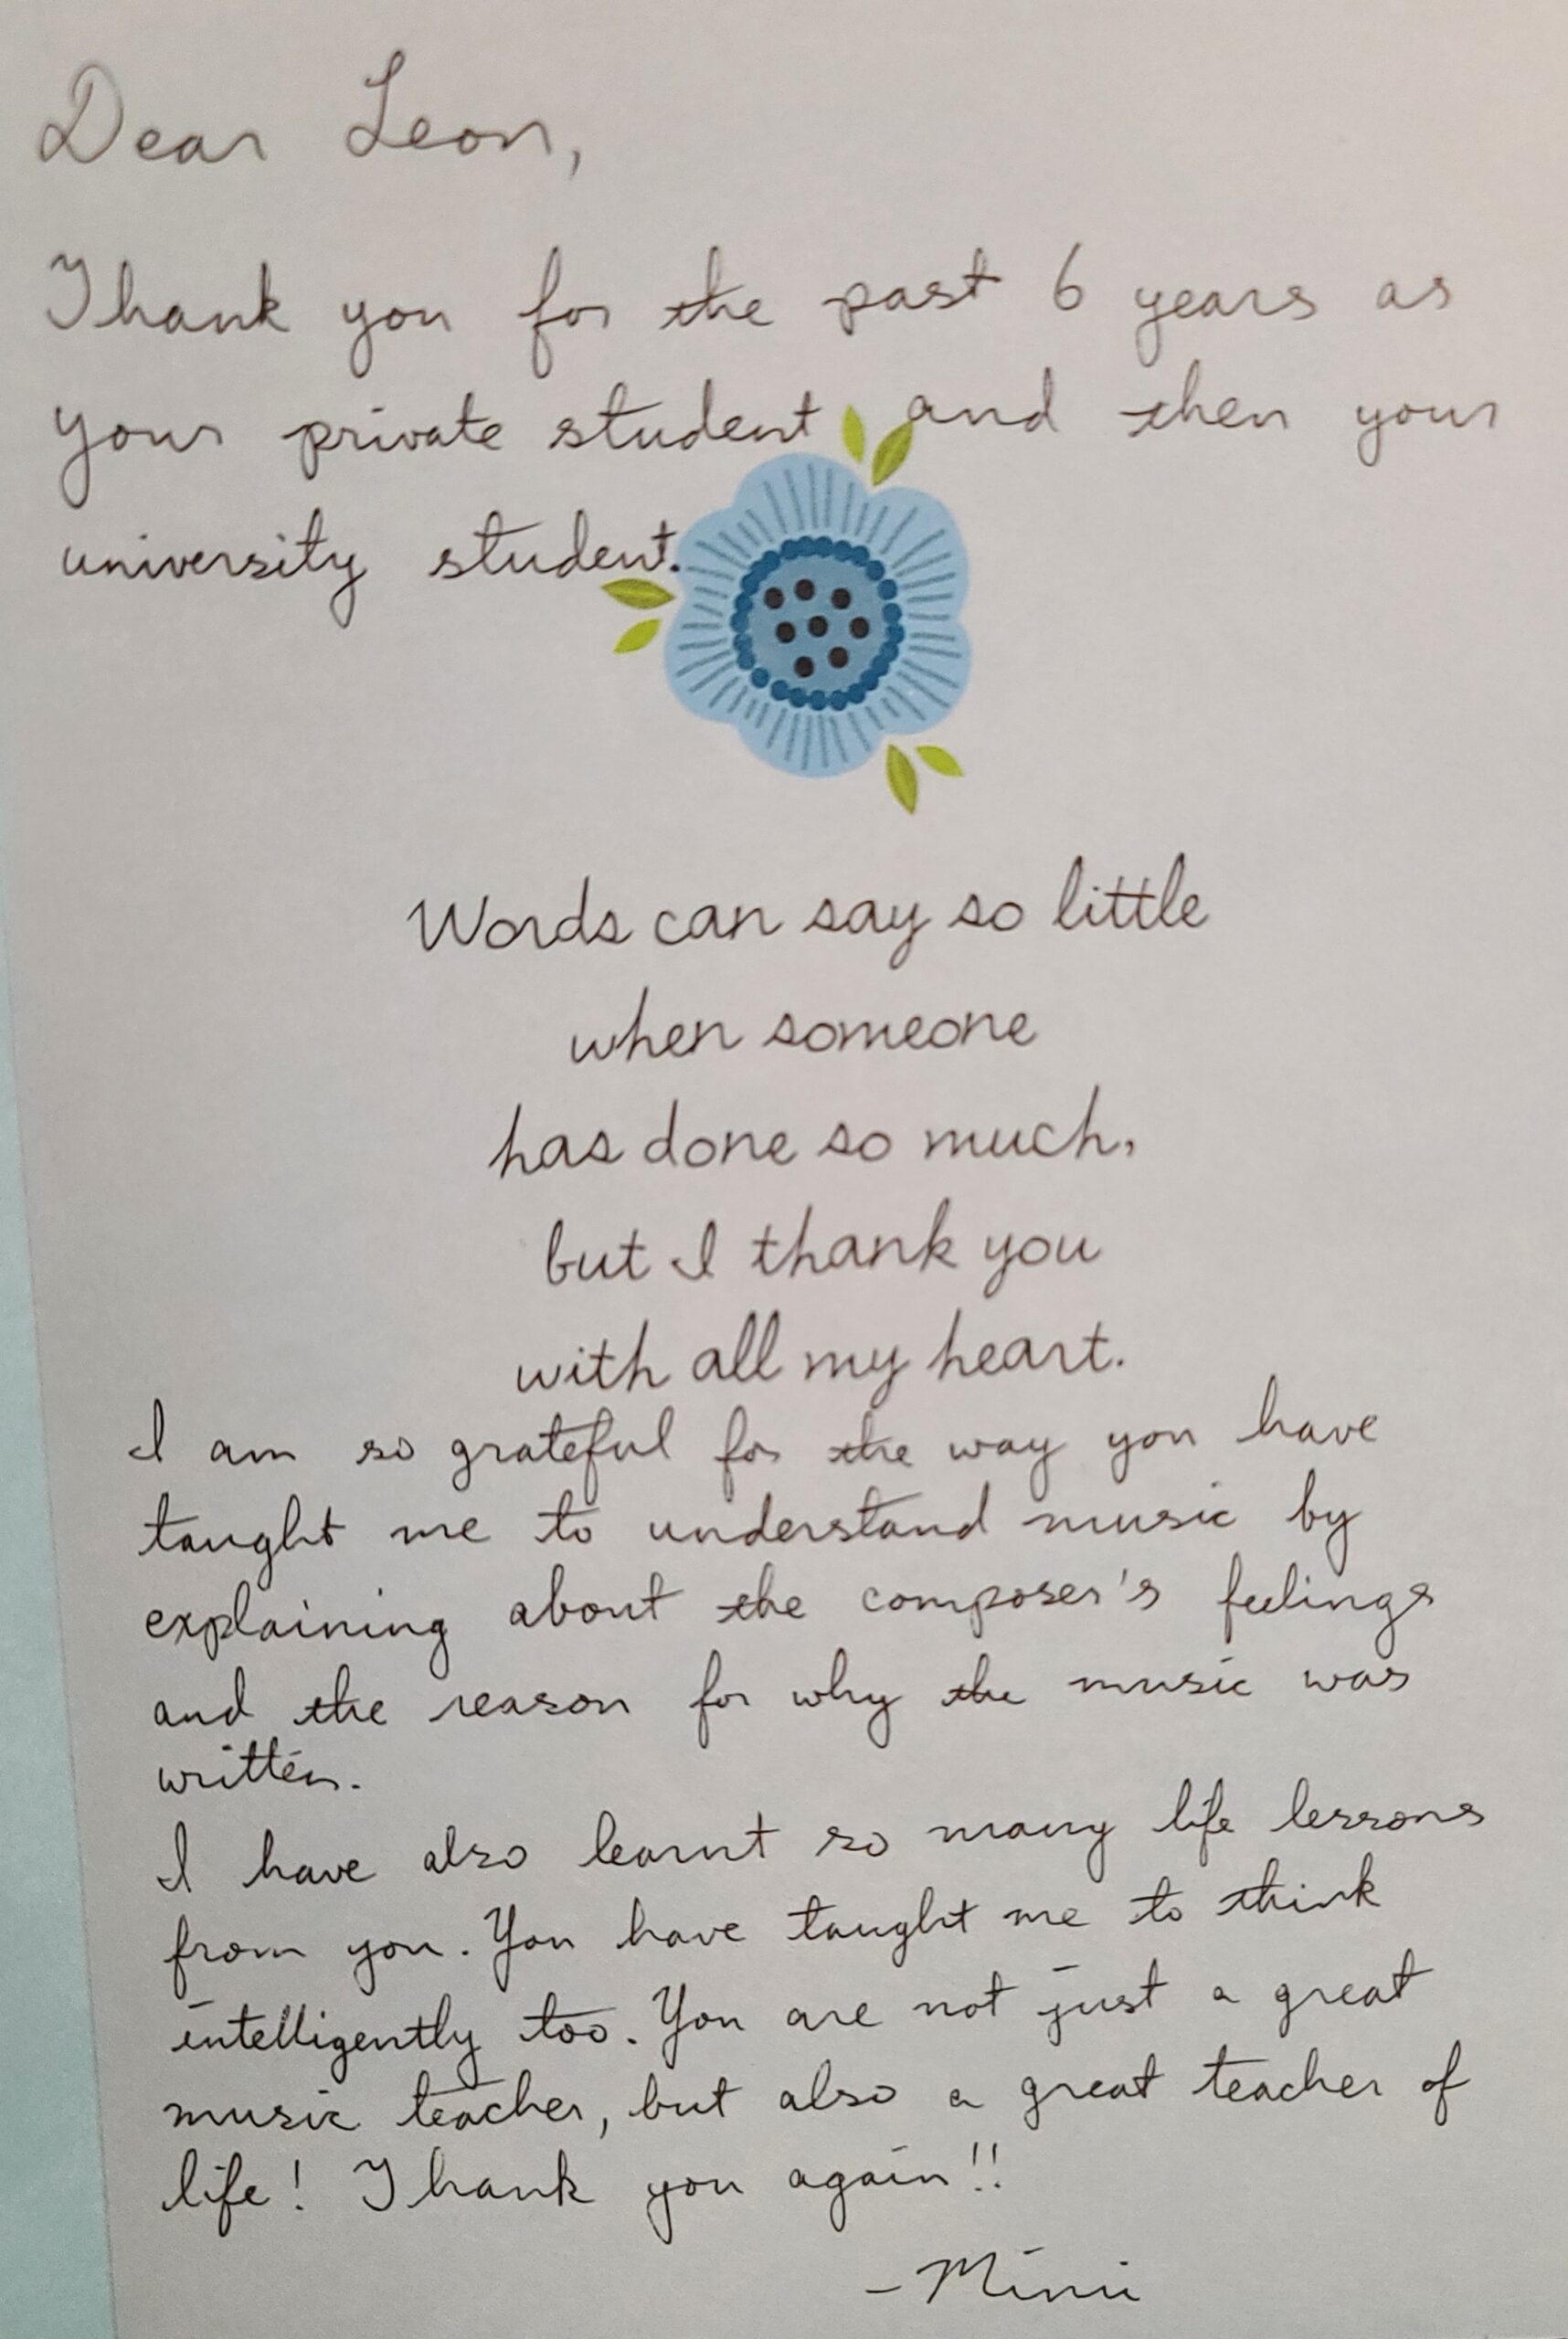 Dear Leon,
Thank you for the past 6 years as
your private student and then your
university student.
Words can say so little
when someone
has done so much,
but I thank you
with all my heart.
I am so grateful for the way you have
taught me to understand music by
explaining about the composer's feelings
and the reason for why the music was
written.
I have also learnt so many life lessons
from you. You have taught me to think
intelligently too. You are not just a great
music teacher, but also a great teacher of
life! Thank you again!!
- Mimi